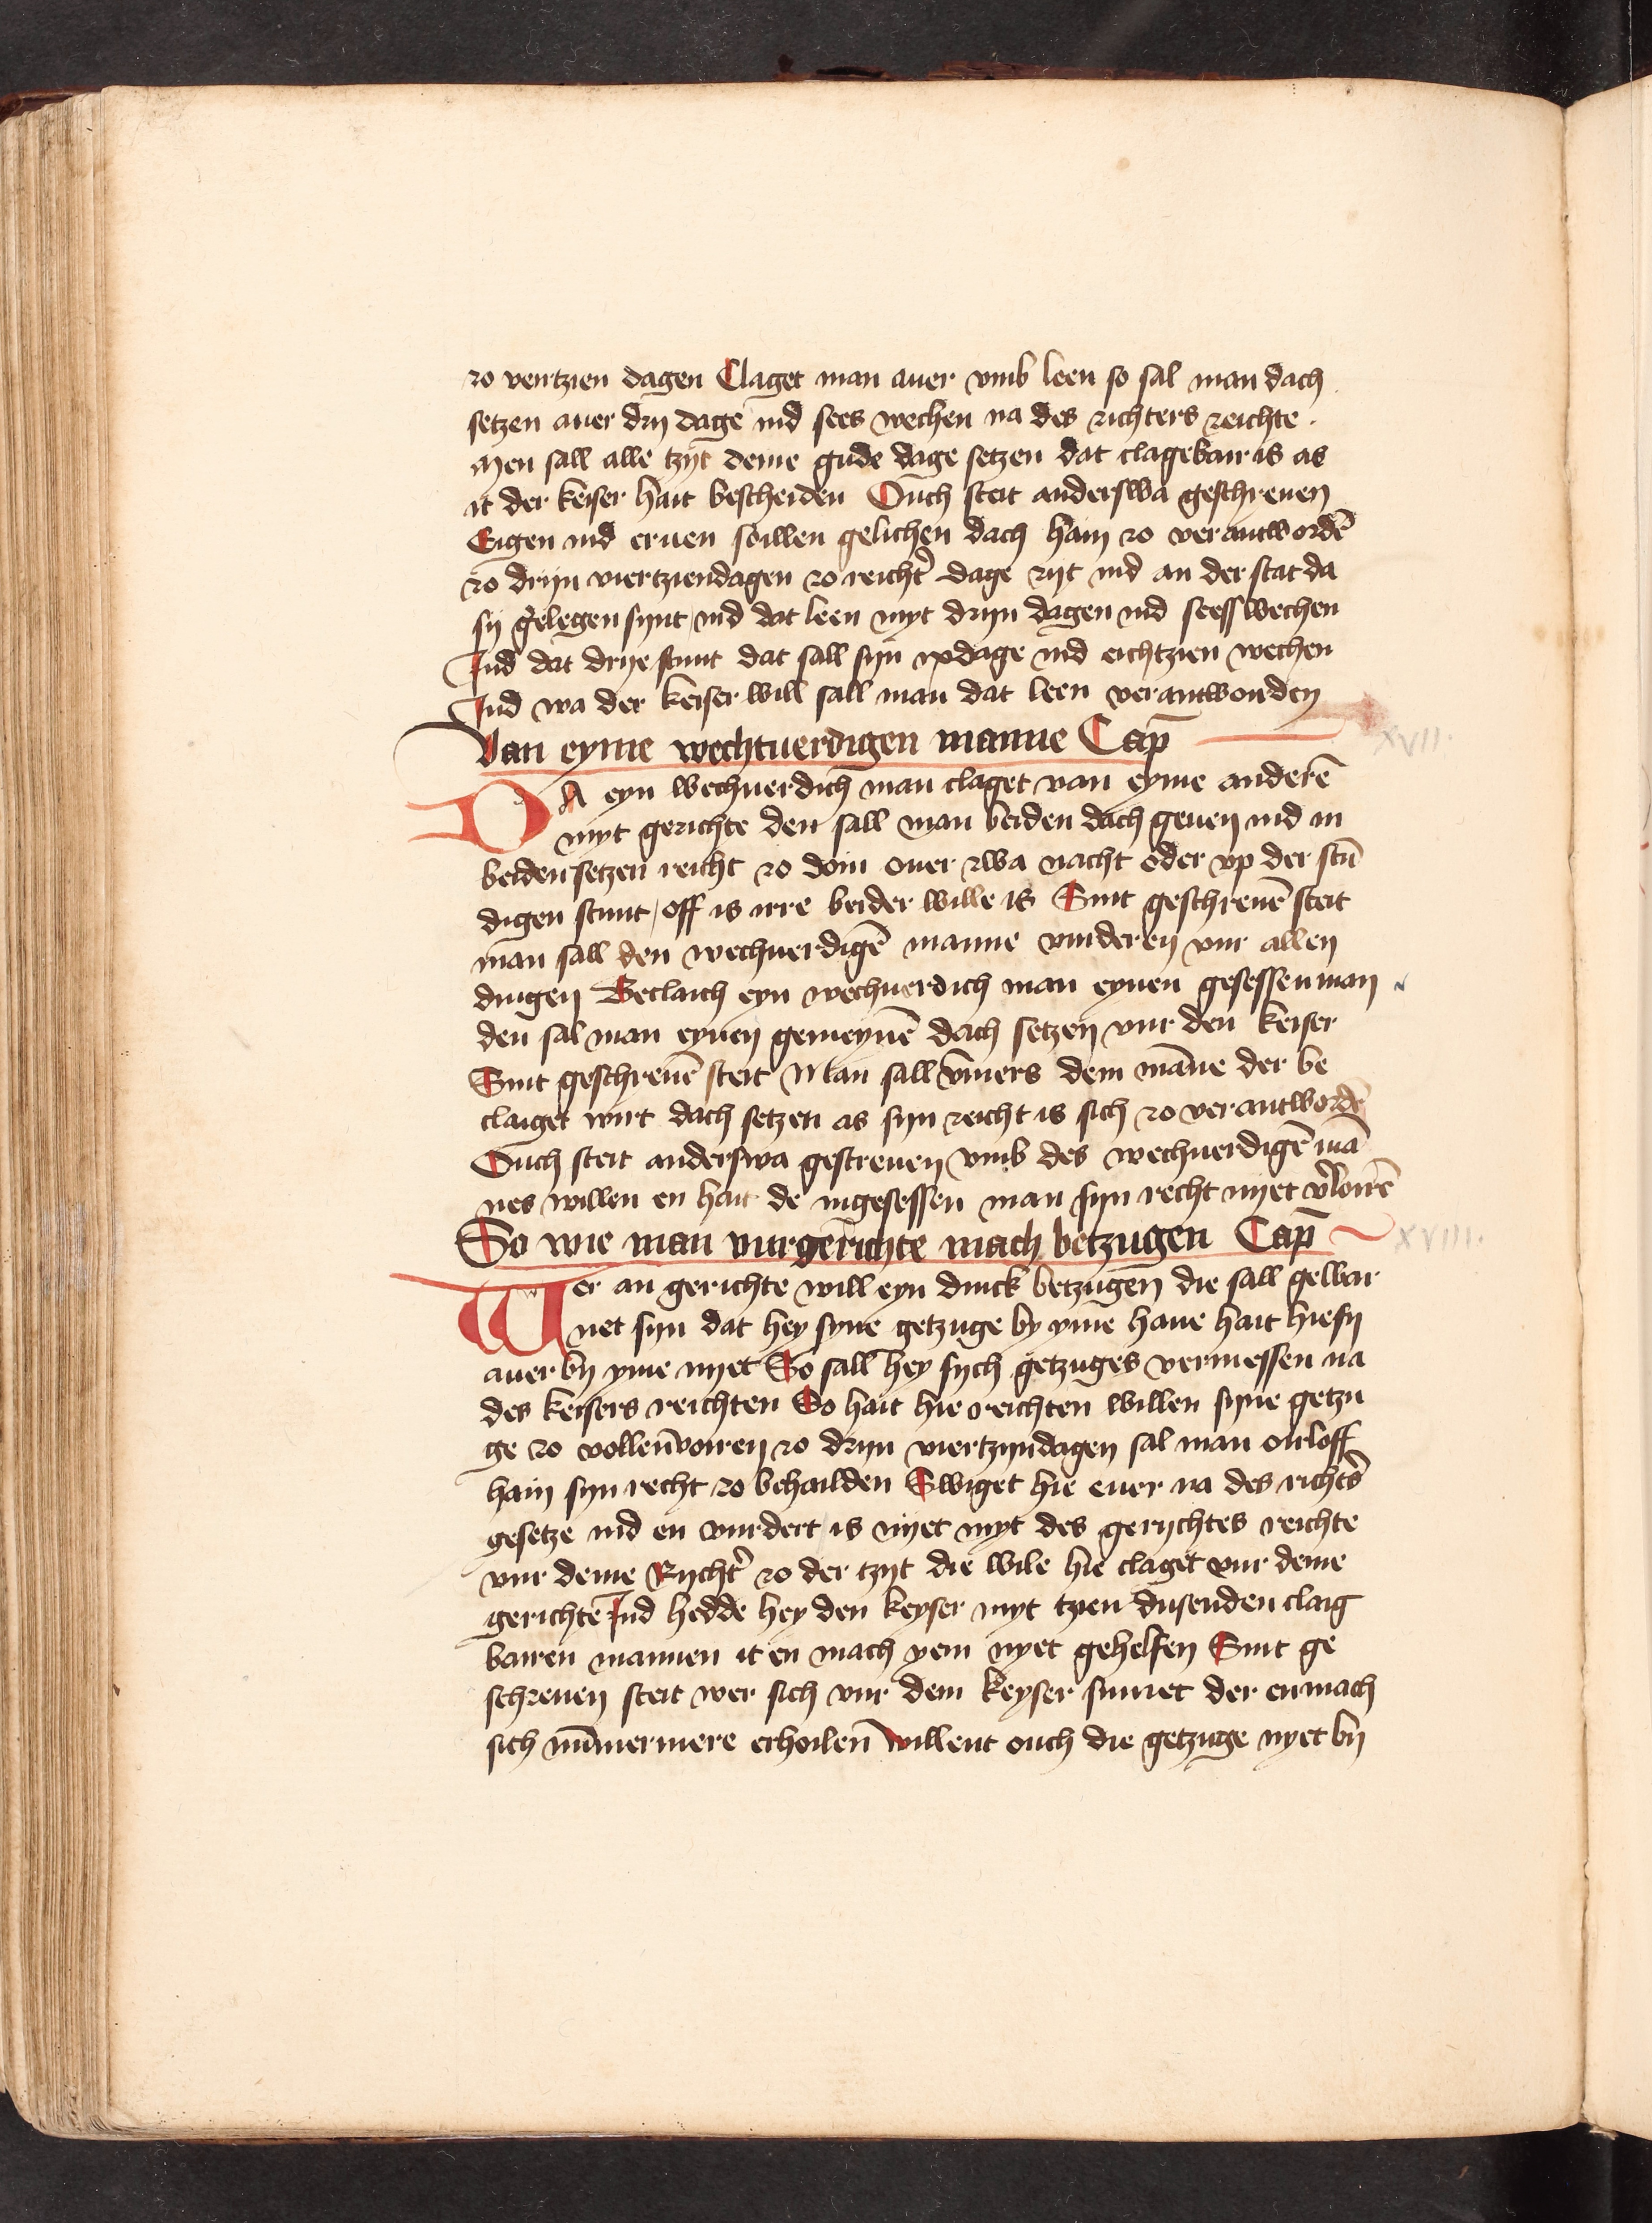 zo veirtzien dagen Claget man auer vmb leen so sal man dach
setzen auer dry dage ind sees wechen na des richters reichte .
Men sall alle tzyt deme gude dage setzen dat clagebair is as
it der keiser hait bescheiden Ouch steit anderswa geschreuen
Eigen ind eruen soillen gelichen dach hain zo verantwordē
zo dryn viertziendagen zo reicht̉ dage zyt ind an der stat da
sy gelegen synt / ind dat leen myt dryn dagen ind seess wechen
Ind dat drye stunt dat sall syn ix dage ind eichtzien wechen
Ind wa der keiser will sall man dat leen verantworden
Van eyme wechtuerdigen manne Cap̄
XVII.
DA eyn wechuerdich man claget van eyme anderē
myt gerichte den sall man beiden dach geuen ind in
beiden setzen reicht zo doin ouer zwa nacht oder vp der stū
digen stunt / off is irre beider wille is Sint geschreuē steit
man sall den wechuerdigē manne vurderen vur allen
dingen Beclaich eyn wechuerdich man eynen gesessen man
den sal man eynen gemeynē dach setzen vur den keiser
Sint geschreuē steit Man sall vm̄ers dem mān̄e der be
claiget wirt dach setzen as syn reicht is sich zo verantwordē
Ouch steit anderswa gescreuen vmb des wechuerdigē mā
nes willen en hait de ingesessen man syn recht nyet v̉loirē
So wie man vurgerichte mach betzugen Cap̄
XVIII.
Wer an gerichte will eyn dinck betzugen die sall gewar
net syn dat hey syne getzuge by yme haue hait hie sy
auer by yme nyet So sall hey sych getzuges vermessen na
des keisers reichten So hait hie reichten willen syne getzu
ge zo vollenvoiren zo dryn viertzyndagen sal man oirloff
hain syn recht zo behailden Swiget hie euer na des richt̉s
gesetze ind en vurdert is nyet myt des gerychtes reichte
vur deme Rycht̉ zo der tzyt die wile hie claget vur deme
gerichte Ind hedde hey den keyser myt tzien dusenden claig
bairen mannen it en mach yem nyet gehelfen Sint ge
schreuen steit wer sich vur dem keyser sumet der enmach
sich nūmermere erhoilen Willent ouch die getzuge nyet by